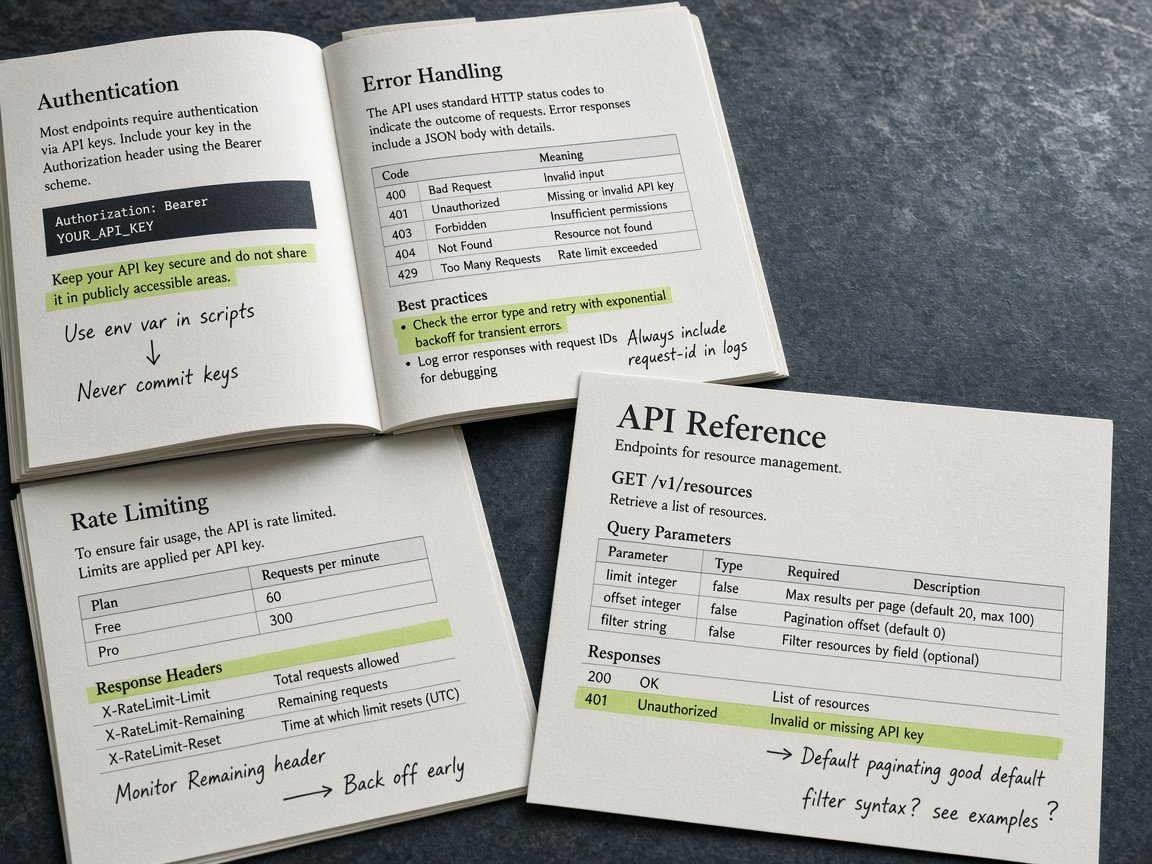 Authentication
Most endpoints require authentication
via API keys. Include your key in the
Authorization header using the Bearer
scheme.
Authorization: Bearer
YOUR_API_KEY
Keep your API key secure and do not share
it in publicly accessible areas.
Use env var in scripts
↓
Never commit keys
Error Handling
The API uses standard HTTP status codes to
indicate the outcome of requests. Error responses
include a JSON body with details.
Code Meaning
400 Bad Request Invalid input
401 Unauthorized Missing or invalid API key
403 Forbidden Insufficient permissions
404 Not Found Resource not found
429 Too Many Requests Rate limit exceeded
Best practices
• Check the error type and retry with exponential
backoff for transient errors.
• Log error responses with request IDs
for debugging
Always include
request-id in logs
Rate Limiting
To ensure fair usage, the API is rate limited.
Limits are applied per API key.
Requests per minute
Plan 60
Free 300
Pro
Response Headers
X-RateLimit-Limit Total requests allowed
X-RateLimit-Remaining Remaining requests
X-RateLimit-Reset Time at which limit resets (UTC)
Monitor Remaining header
→ Back off early
API Reference
Endpoints for resource management.
GET /v1/resources
Retrieve a list of resources.
Query Parameters
Parameter Type Required Description
limit integer false Max results per page (default 20, max 100)
offset integer false Pagination offset (default 0)
filter string false Filter resources by field (optional)
Responses
200 OK List of resources
401 Unauthorized Invalid or missing API key
→ Default paginating good default
filter syntax? see examples ?